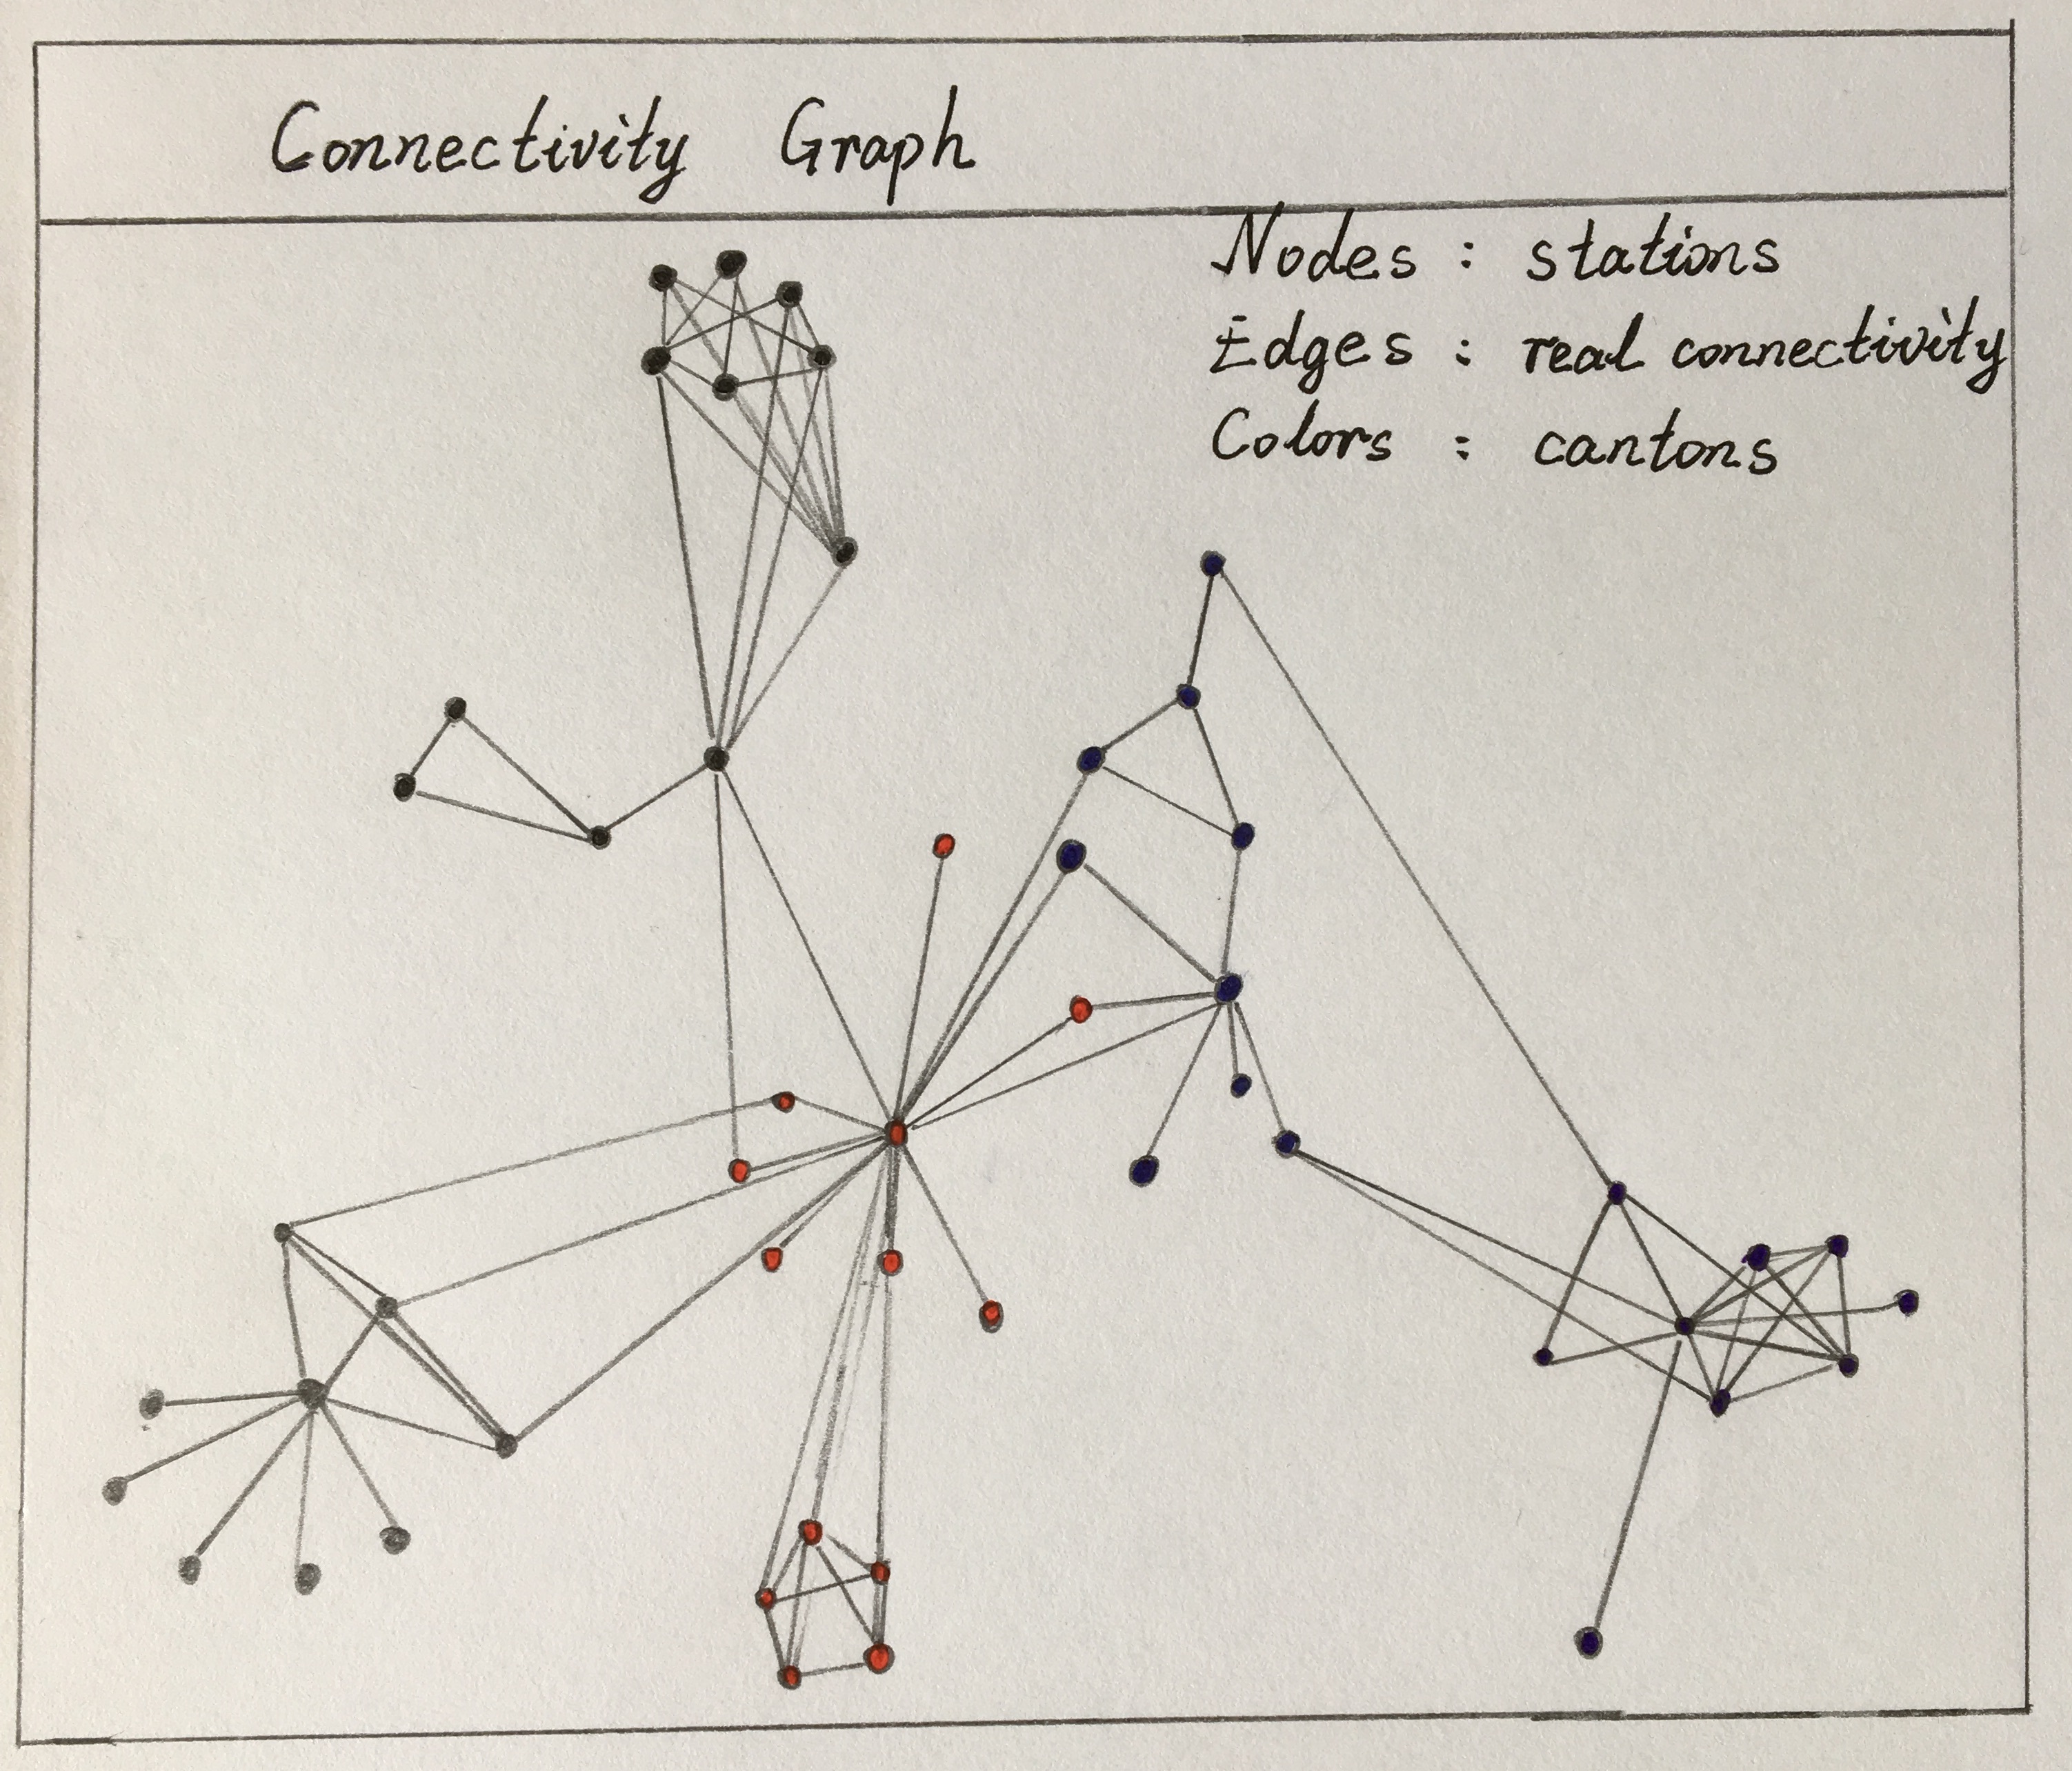 Connectivity Graph
Nodes : stations
Edges : real connectivity
Colors : cantons